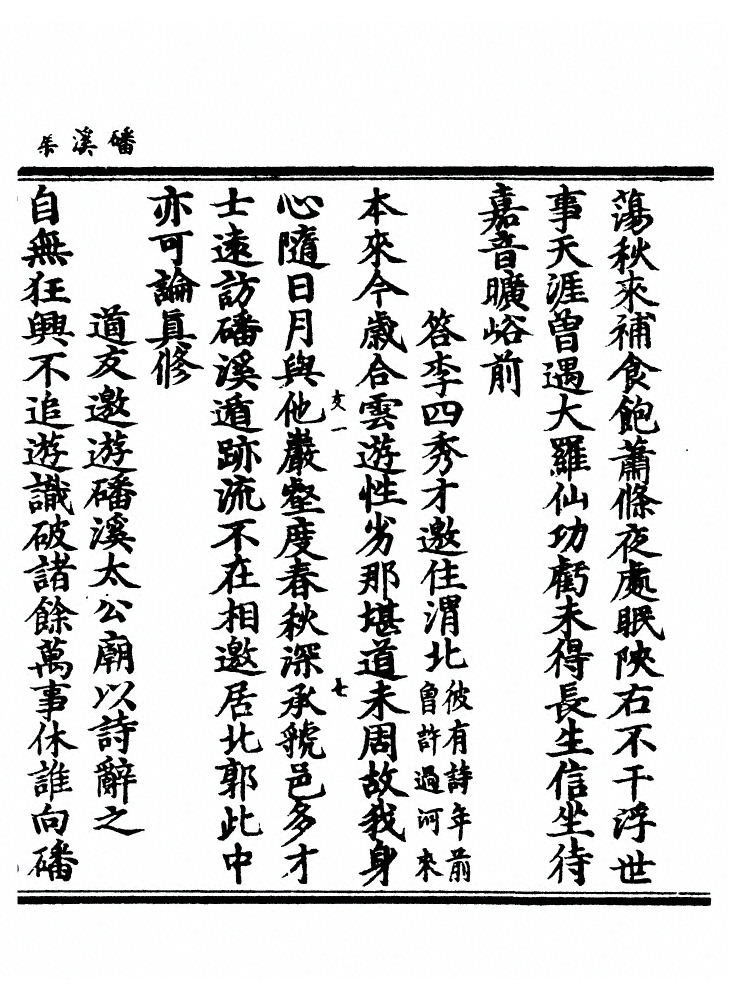 磻溪集
蕩秋來補食飽蕭條夜處眠陝右不干浮世
事天涯曾遇大羅仙功虧未得長生信坐待
嘉音曠峪前
答李四秀才邀住渭北彼有詩年前曾許過河來
本來今歲合雲遊性劣那堪道未周故我身
心隨日月與他巖壑度春秋深承虢邑多才
士遠訪磻溪遁跡流不在相邀居北郭此中
亦可論真修
道友邀遊磻溪太公廟以詩辭之
自無狂興不追遊識破諸餘萬事休誰向磻
亥一
七